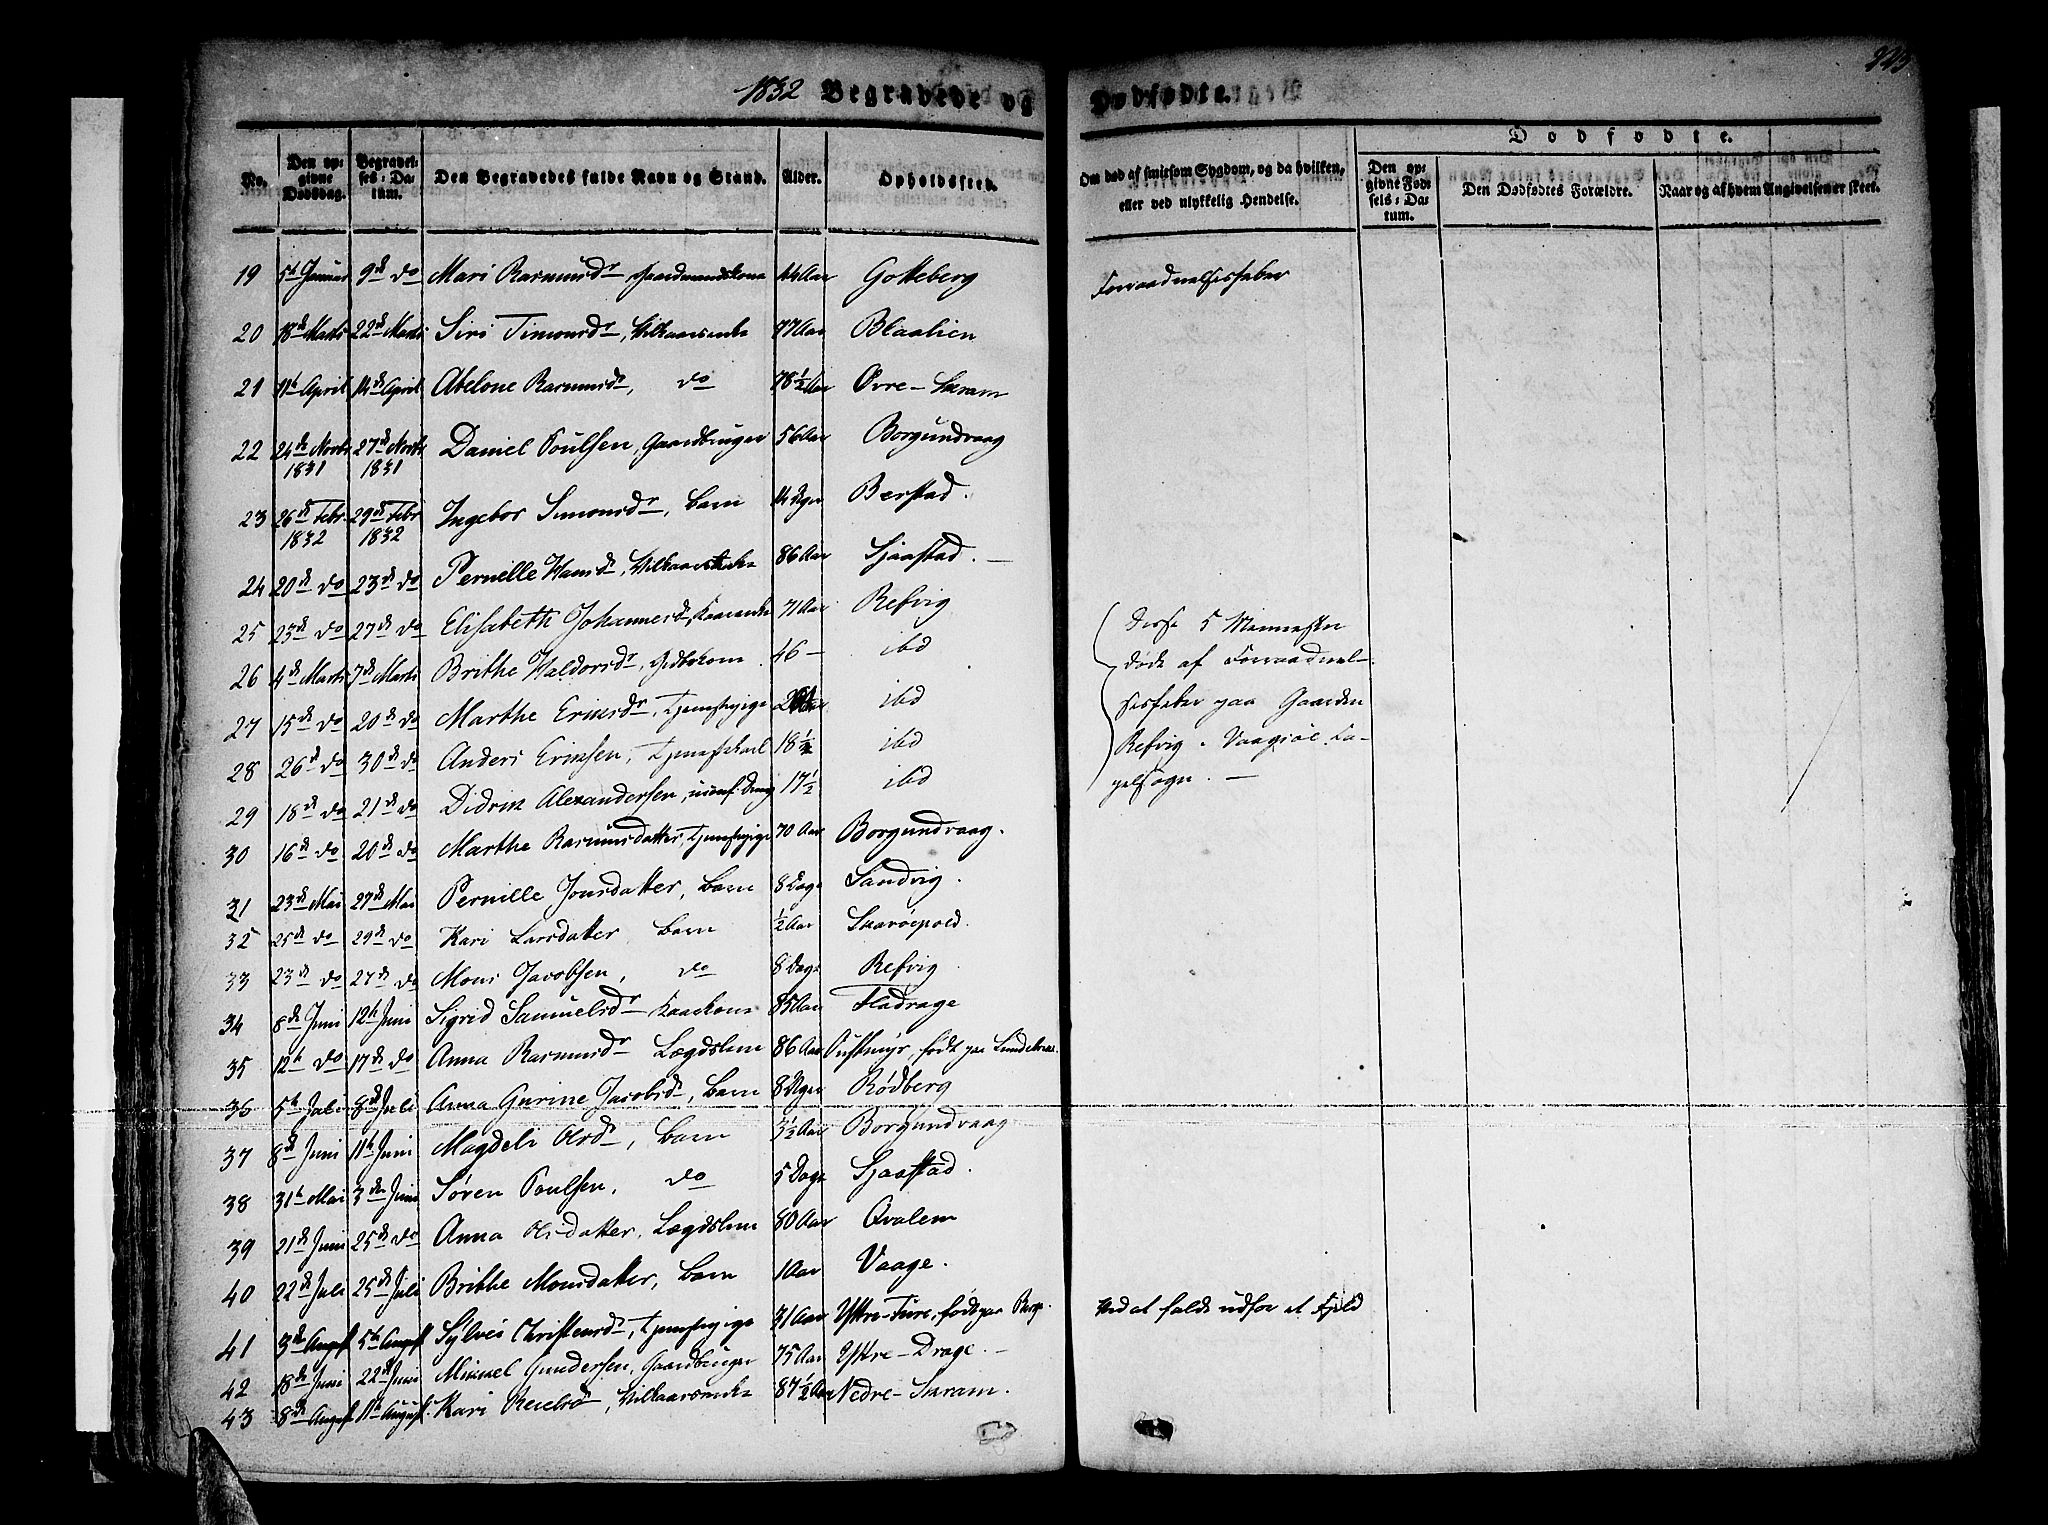 1832 Begravede og Dødfødte.
No. | Den opgivne Dødsdag. | Begravelses-Datum. | Den Begravedes fulde Navn og Stand. | Alder. | Opholdssted. | Om død af smitsom Sygdom, og da hvilken, eller ved ulykkelig Hendelse. | Dødfødte. Den opgivne Fødsels-Datum. | Den Dødfødtes Forældre. | Naar og af hvem Angivelsen er skeet.
19 5th Januar 9de do Mari Rasmusdr Gaardmandskone 44 Aar Gotteberg Forraadnelsesfeber
20 18de Marts 22de Marts Siri Timonsdr, Vilkaarsenke 77 Aar Blaalien
21 11th April 14de April Abelone Rasmusdr, do 78½ Aar Øvre-Skram
22 24de Novbr 1831 27de Novbr 1831 Daniel Poulsen, Gaardbruger 56 Aar Borgundvaag
23 26de Febr 1832 29de Febr 1832 Ingebor Simonsdr, Barn 14 Uger Berstad.
24 20de do 23de do Pernille Hansdr, Vilkaarsenke 86 Aar Sjaastad.
25 23de do 27de do Elisabeth Johannesdr, Kaarenke 71 Aar Refvig
26 4de Marts 7de Marts Brithe Haldorsdr, 46 — ibd
27 15de do 20de do Marthe Eriksdr, Tjenestpige ibd
28 26de do 30de do Anders Eriksen, Tjenestekarl 18½ ibd
29 18de do 21de do Didrik Alexandersen, Dreng 17½ ibd
Disse 5 Mennesker
døde af Forraadnel-
sesfeber paa Gaarden
Refvig i Vaagsøe Ca-
pelsogn. —
30 16de do 20de do Marthe Rasmusdatter, Tjenestpige 70 Aar Borgundvaag.
31 23de Mai 27de Mai Pernille Jonsdatter, Barn 8 Dage Sandvig.
32 25de do 29de do Kari Larsdatter Barn ½ Aar Skarøepold.
33 23de do 27de do Mons Jacobsen, do 8 Dage Refvig.
34 8de Juni 12th Juni Sigrid Samuelsdr Kaarkone 85 Aar Fladrage
35 12th do 17de do Anna Rasmusdr Lægdslem 86 Aar født paa
36 5th Juli 8de Juli Anna Gurine Jacobsdr, Barn 8 Uger Rødberg
37 8de Juni 11th Juni Magdeli Olsdr, Barn 3½ Aar Borgundvaag
38 31th Mai 3die Juni Søren Poulsen, do 5 Dage Sjaastad.
39 21de Juni 25de do Anna Olsdatter, Lægdslem 80 Aar Qvalem
40 22de Juli 25de Juli Brithe Monsdatter, Barn 1 Aar Vaage.
41 3die August 5th August Sylvei Christensdr, Tjenestpige 21 Aar Ystre-Fure, født paa Berge. Ved at falde udfor et Fjeld
42 18de Juni 22de Juni Mikkel Gundersen, Gaardbruger 75 Aar Ystre-Drage. —
43 8de August 11th August. Kari Vilkaarsenke 87½ Aar Nedre-Skram.